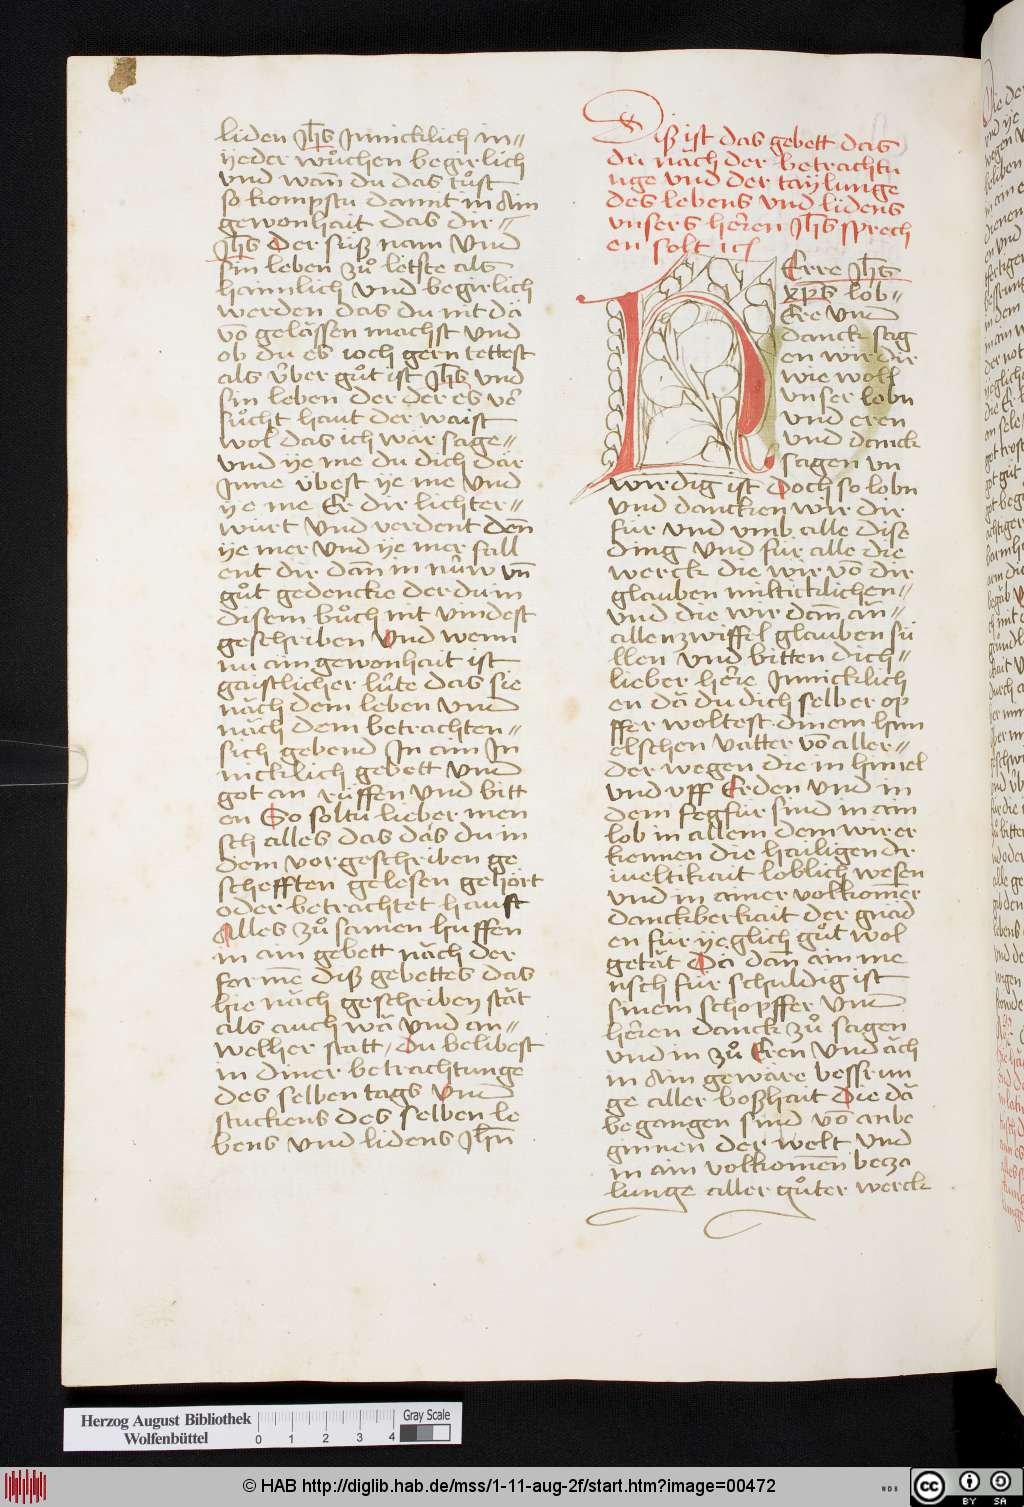 liden Jhs Jnnicklich in=
yeder wuͦchen begirlich
vnd wan̄ du das tuͦst
so kompstu damit in ain
gewonhait das dir=
Jhs Der süß nam vnd
sin leben zuͦ letste als
haimlich vnd begirlich
werden das du nit dā
vō gelāssen machst vnd
ob du es ioch gern tettest
als v̈ber guͦt ist Jhs vnd
sin leben der der es ve͛
suͦcht haut der waist
wol das ich war sage=
vnd ye me du dich dar
Jnne v̈best ye me vnd
ye me Er dir lichter=
würt vnd verdent den̄
ye mer vnd ye mer fall
ent dir dan̄ in nüw vn̄
guͦt gedencke der du in
disem buͦch nit vindest
geschriben vnd wenn
nu ain gewonhait ist
gaistlicher lüte das sie
nāch dem leben vnd
nāch dem betrachten=
sich gebend Jn ain Jn
nicklich gebett vnd
got an rüffen vnd bitt
en So soltu lieber men
sch alles das das du in
dem vorgeschriben ge
schefften gelesen gehört
oder betrachtet haust
Alles zuͦ samen huffen
in ain gebett nāch der
for me͞ diß gebettes das
hie nāch geschriben stāt
als auch wā vnd an=
welher statt / Du belibest
in diner betrachtunge
des selben tags vnd
stuckens des selben le
bens vnd lidens Jhn̄
Diß ist das gebett das
du nach der betrachtu
nge vnd der taylunge
des lebens vnd lidens
vnsers heͤren Jhs sprech
en solt ich
HErre Jhs
xps lob=
Ere vnd
danck sag
en wir dir
wie woll
vnser lobn
vnd eren
vnd danck
sagen vn
wirdig ist Doch so lobn
vnd dancken wir dir
für vnd vmb alle dise
ding vnd für alle die
werck die wir vō dir
glauben miltticklichen=
vnd die wir dan̄ ān=
allen zwiffel glauben sü
llen vnd bitten dich=
lieber heͤre Jnnicklich
en dā du dich selber op
ffer woltest dinem him
elschen vatter vō aller=
der wegen die in himel
vnd vff Erden vnd in
dem fegfür sind in ain
lob in allem dem wir er
kennen die hailigen dr
iueltikait loblich wesen
vnd in ainer volkomer
danckberkait der gnād
en für yeglich guͦt wol
getāt Dā dan̄ ain me
nsch für schuldig ist
sinem schopffer vnd
heͤren danck zuͦ sagen
vnd in zuͦ Eren vnd āch
in ain gewāre bessrun
ge aller boßhait Die dā
begangen sind vō anbe
ginnen der welt vnd
in ain volkomen beza
lunge aller guͦter werck
Herzog August Bibliothek
Wolfenbüttel
0 1 2 3 4
Gray Scale
© HAB http://diglib.hab.de/mss/1-11-aug-2f/start.htm?image=00472
WDB
CC BY SA